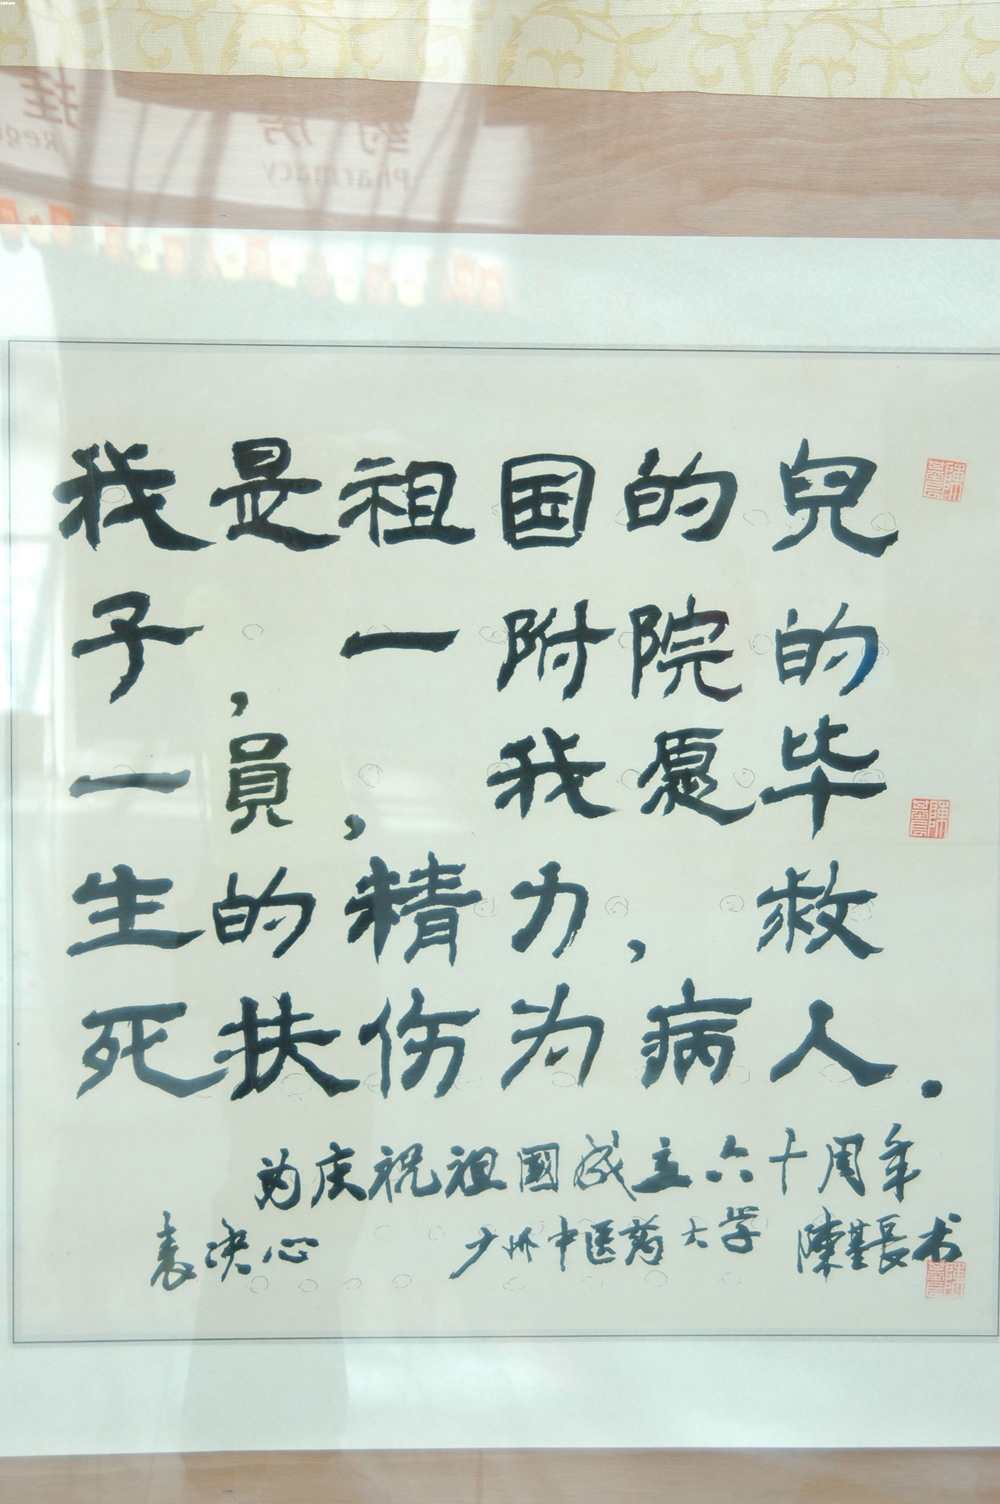 我是祖国的兒
子，一附院的
一員，我愿毕
生的精力，救
死扶伤为病人.
为庆祝祖國成立六十周年
表决心 广州中医药大学 陳基長书
药房
Pharmacy
挂
Reg